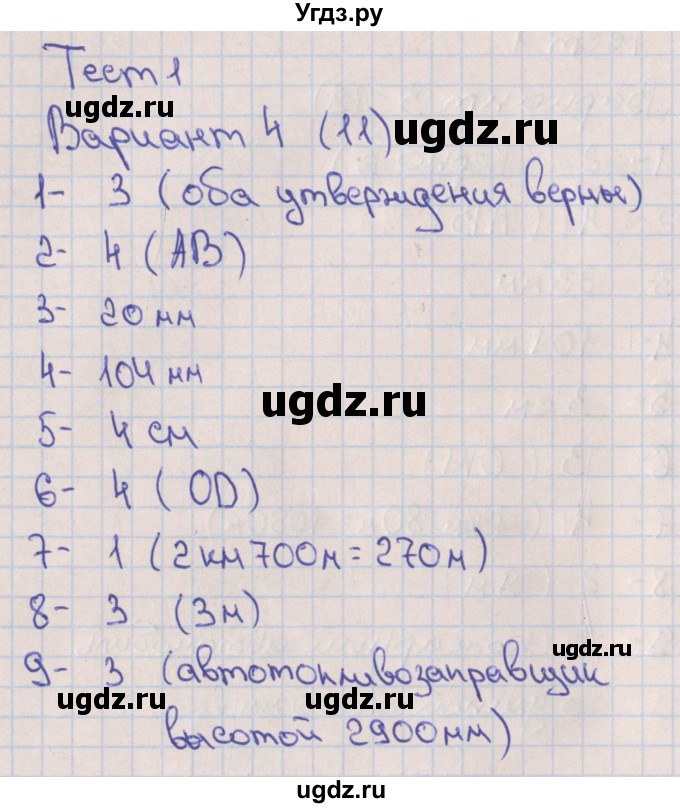 Угдз.ру
Тест 1
ugdz.ru
Вариант 4 (11)
ugdz.ru
1- 3 (оба утверждения верны)
2- 4 (AB)
3- 20 мм
4- 104 мм
ugdz.ru
5- 4 см
6- 4 (OD)
7- 1 (2км 700м = 270м)
8- 3 (3м)
ugdz.ru
9- 3 (автотопливозаправщик
ugdz.ru
высотой 2900мм)
ugdz.ru